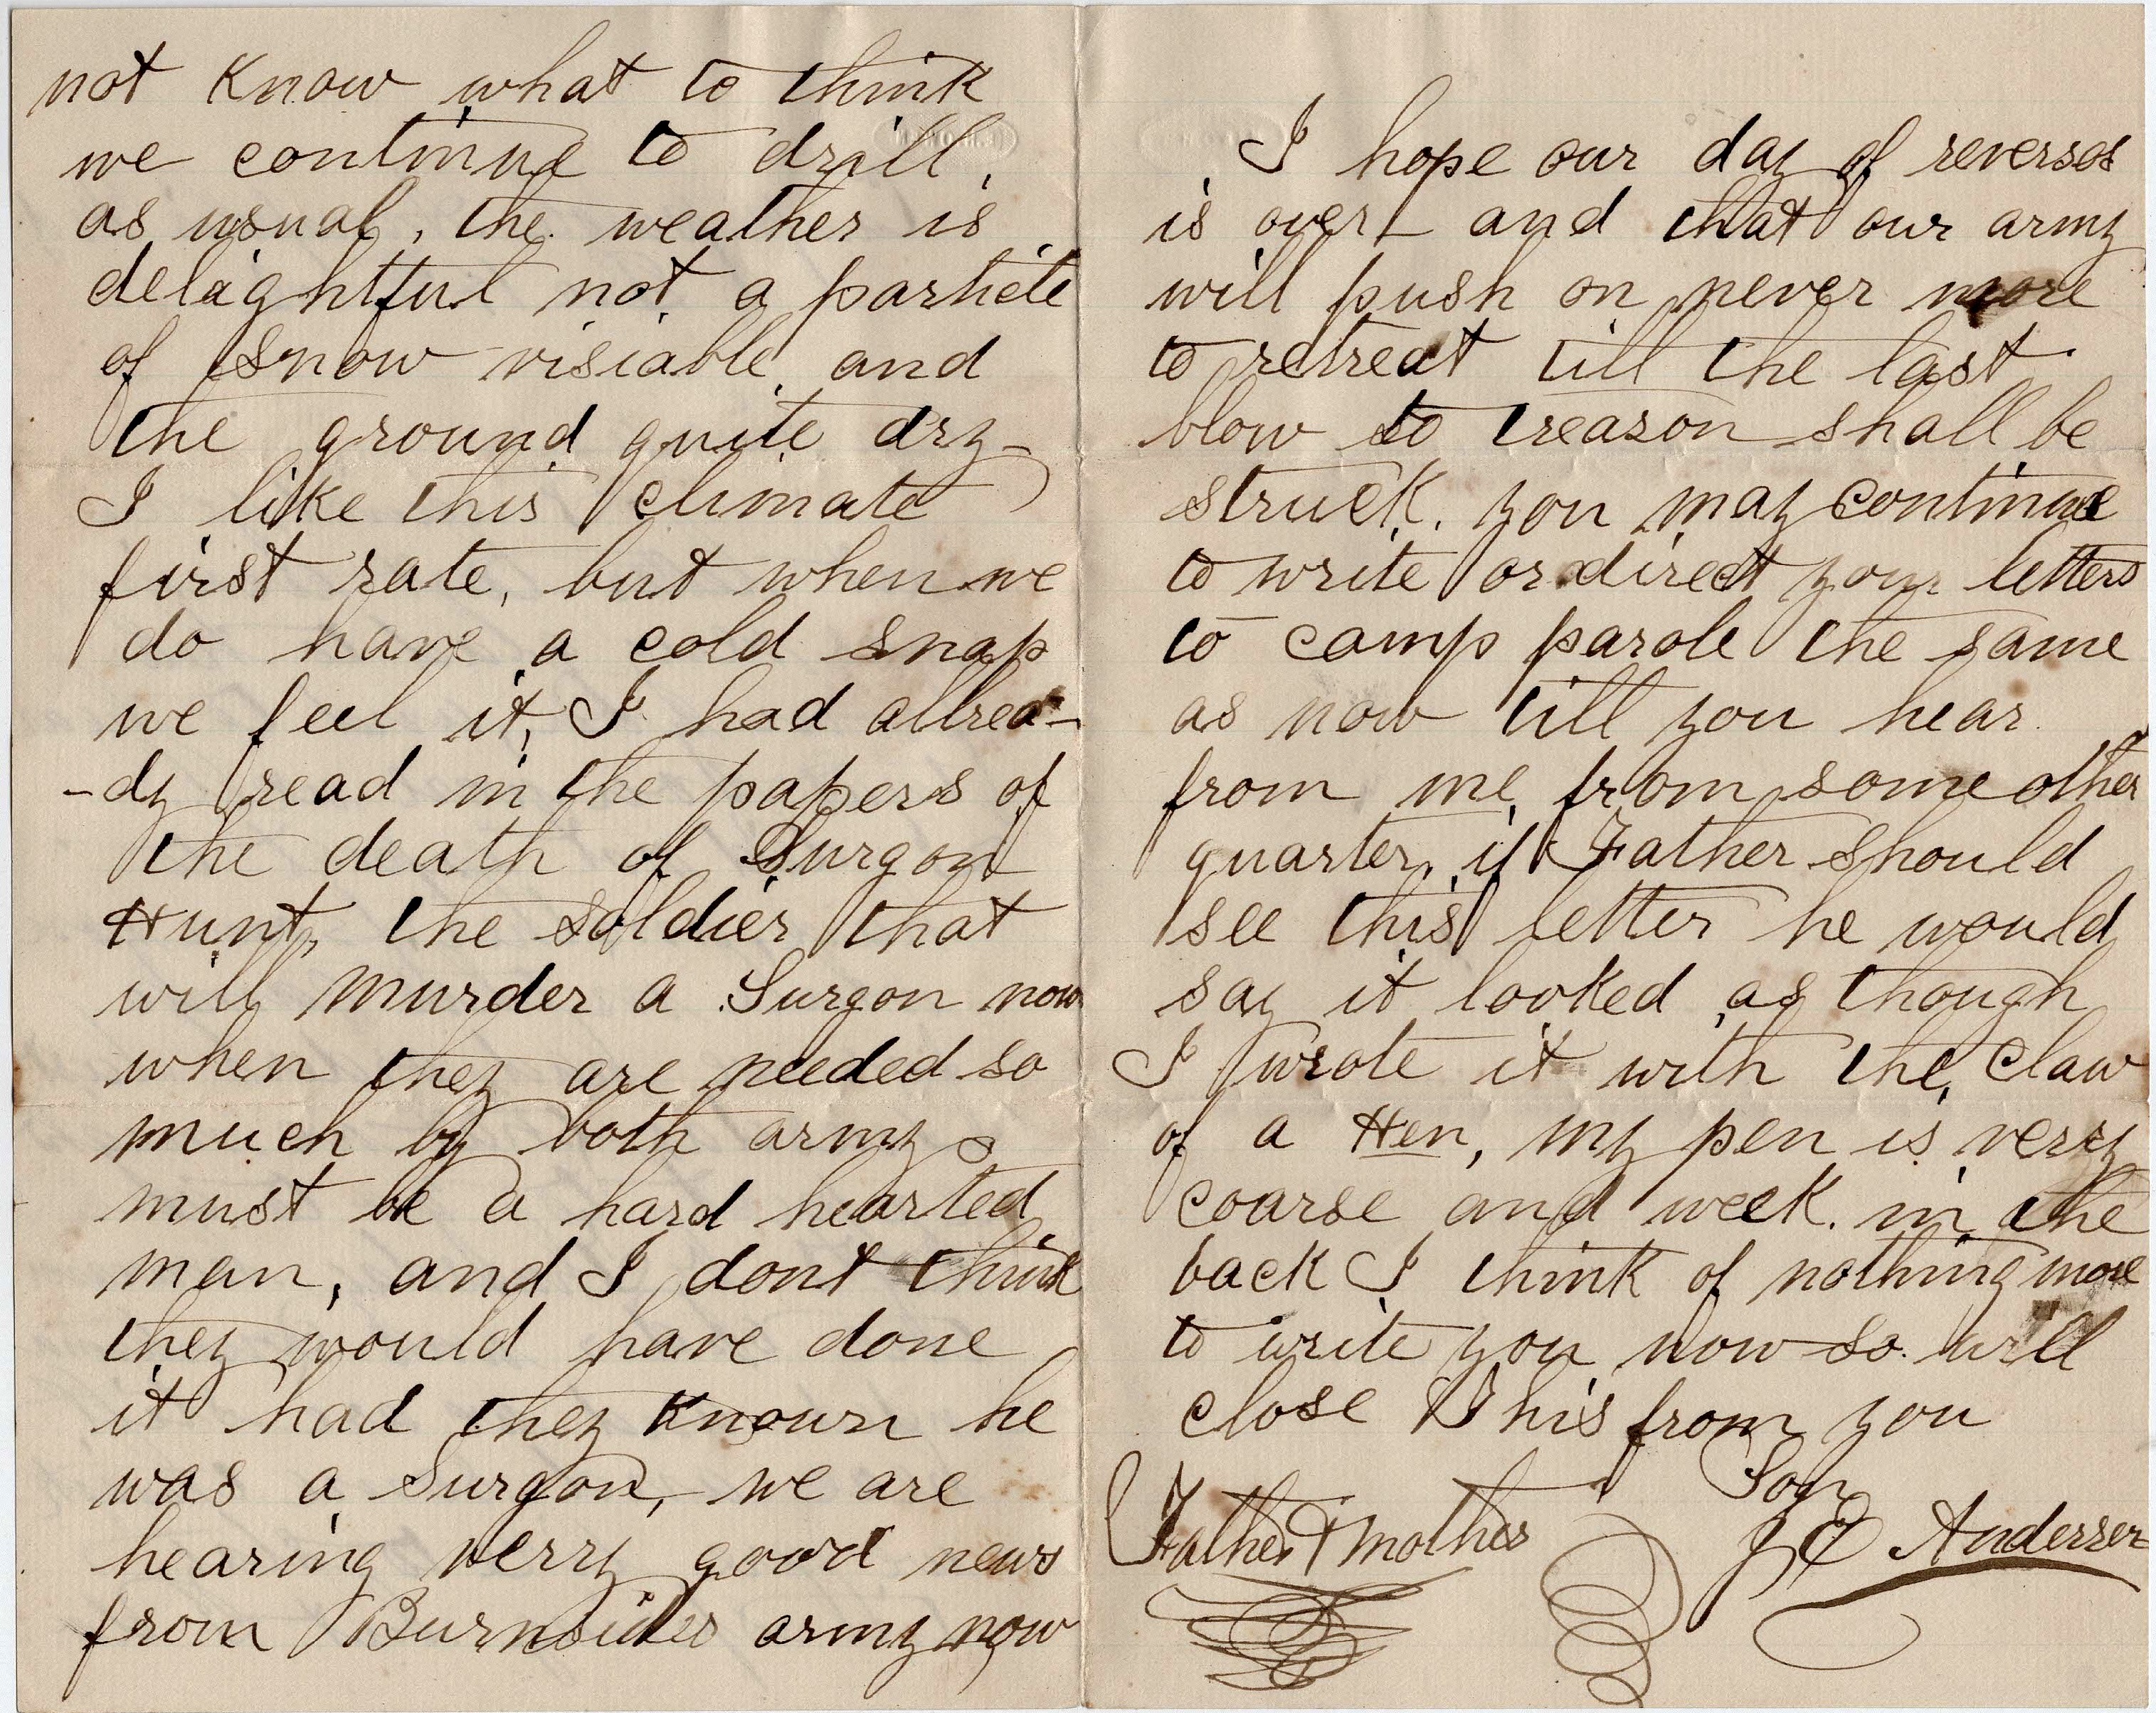 not know what to think
we continue to drill
as usual, the weather is
delightful not a particle
of snow visiable and
the ground quite dry-
I like this climate
first rate, but when we
do have a cold snap
we feel it, I had allrea-
-dy read in the papers of
the death of Surgon
Hunt, the soldier that
will murder a Surgon now
when they are needed so
much by both armys
must be a hard hearted
man, and I dont think
they would have done
it had they known he
was a surgon, we are
hearing verry good news
from Burnsides army now
I hope our day of reverses
is over - and that our army
will push on never more
to retreat till the last
blow to treason shall be
struck. you may continue
to write or direct your letters
to camp parole the same
as now till you hear
from me from some other
quarter, if Father should
see this letter he would
say it looked as though
I wrote it with the claw
of a Hen, my pen is verry
coarse and week in the
back I think of nothing more
to write you now so will
close this from you
Son
Father & mother J E Anderson